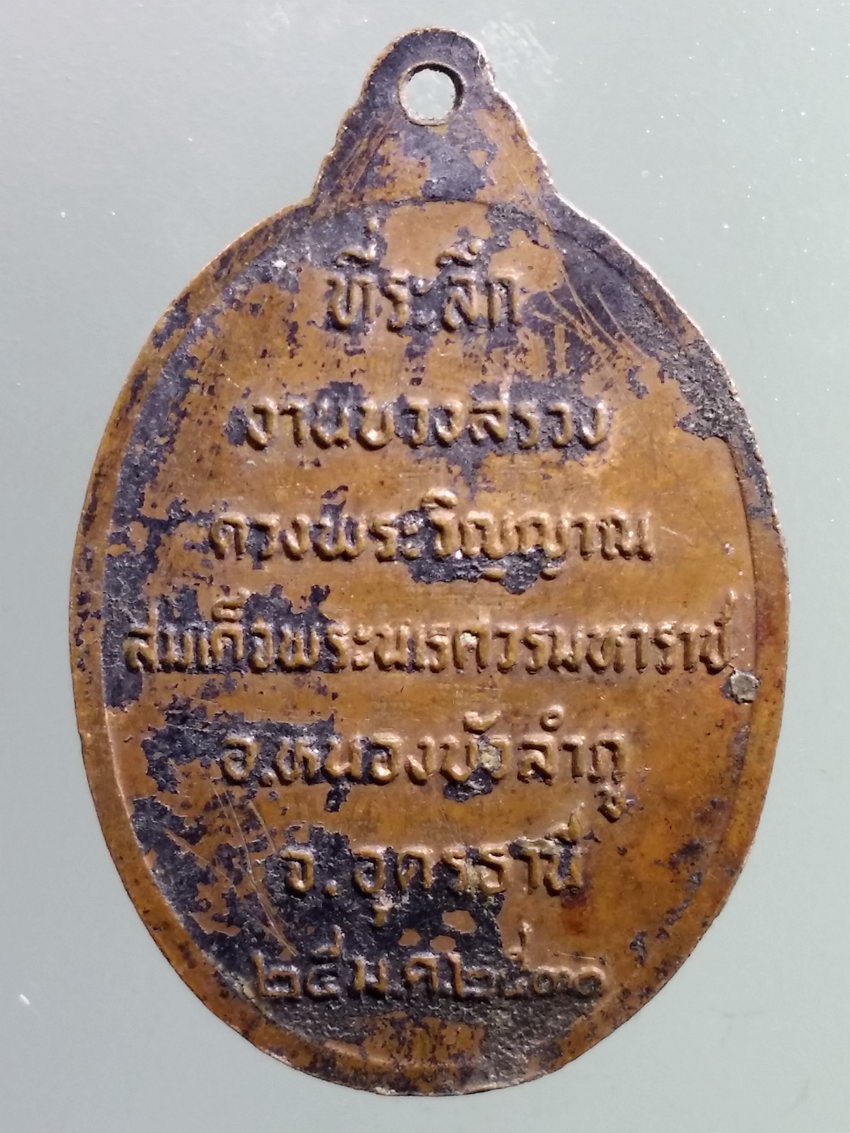 ที่ระลึก
งานบวงสรวง
ดวงพระวิญญาณ
สมเด็จพระนเรศวรมหาราช
อ.หนองบัวลำภู
จ.อุดรธานี
๒๕ ม.ค.๒๕๓๑